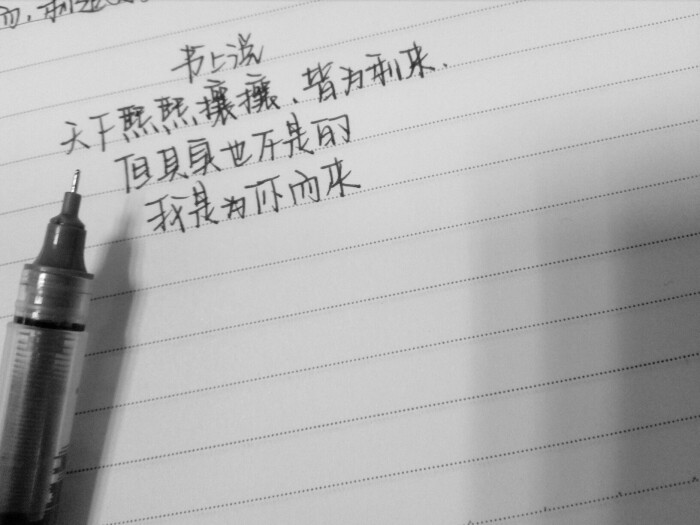 书上说
天下熙熙攘攘、皆为利来.
但其实也不是的
我是为你而来